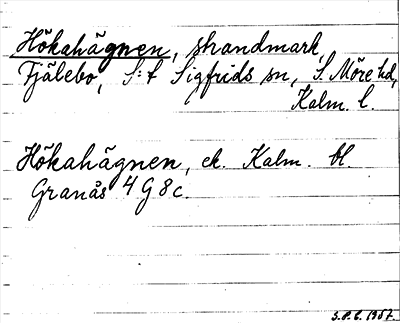 Hökahägnen, strandmark,
Fjälebo, S:t Sigfrids sn, S Möre hd,
Kalm. l.
Hökahägnen, ek. Kalm. bl.
Granås 4 G 8 c.
S.P.E. 1957.